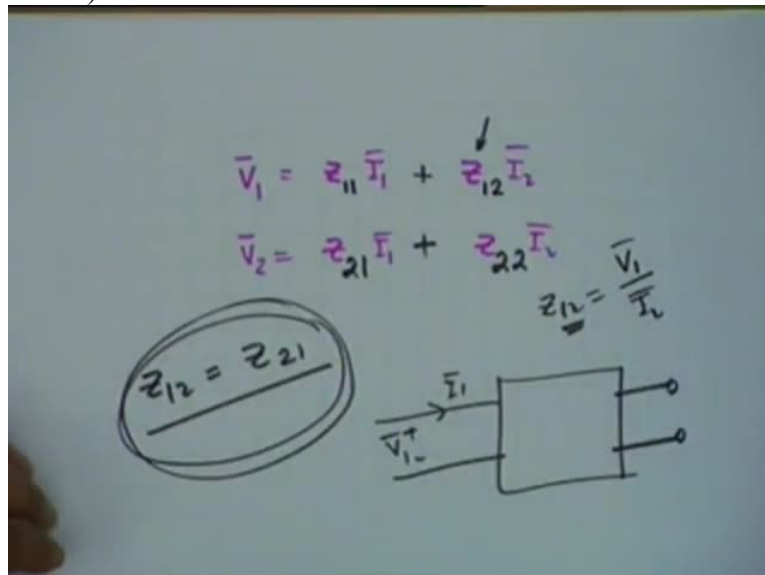 V̄₁ = z₁₁ Ī₁ + z₁₂ Ī₂
V̄₂ = z₂₁ Ī₁ + z₂₂ Ī₂
z₁₂ = V̄₁ / Ī₂
z₁₂ = z₂₁
Ī₁
V̄₁ + -